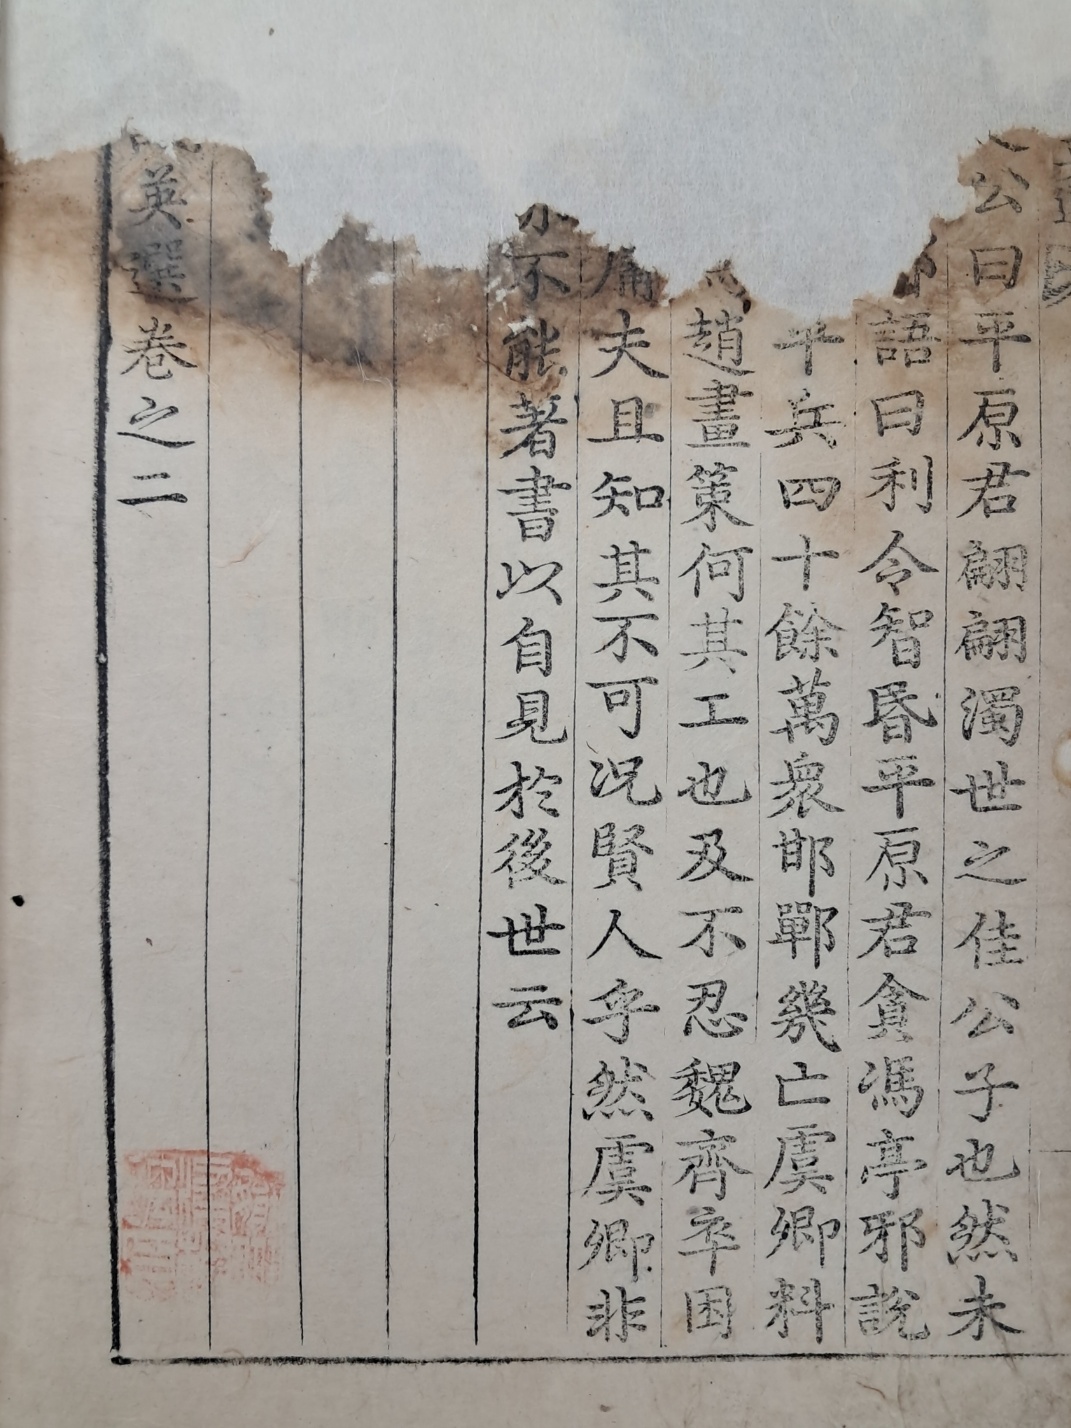 公曰平原君翩翩濁世之佳公子也然未
語曰利令智昏平原君貪馮亭邪說
平兵四十餘萬衆邯鄲幾亡虞卿料
趙畫策何其工也及不忍魏齊卒困
庸夫且知其不可况賢人乎然虞卿非
不能著書以自見於後世云
英選卷之二